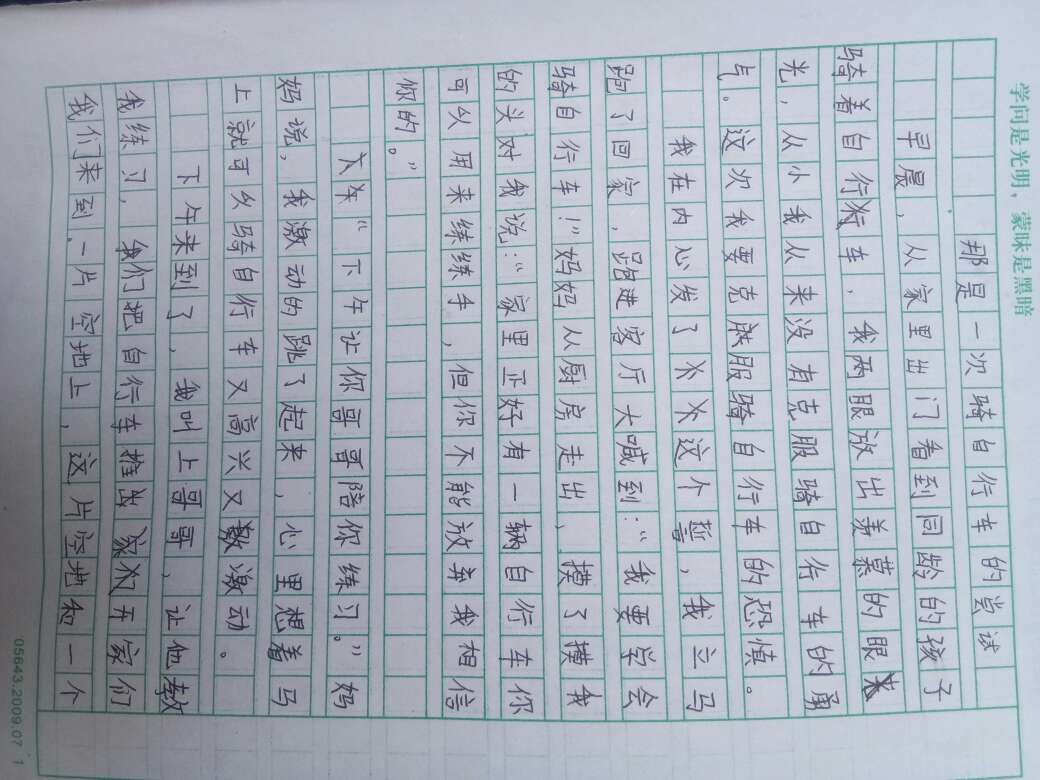 学问是光明，蒙昧是黑暗
那是一次骑自行车的尝试
早晨，从家里出门看到同龄的孩子
骑着自行车，我两眼放出羡慕的眼
光，从小我从来没有克服骑自行车的勇
气。这次我要克服骑自行车的恐惧。
我在内心发了这个誓，我立马
跑了回家，跑进客厅大喊到：“我要学会
骑自行车！”妈妈从厨房走出，摸了摸我
的头对我说：“家里正好有一辆自行车你
可以用来练练手，但你不能放弃我相信
你的。”
“下午让你哥哥陪你练习。”妈
妈说，我激动的跳了起来，心里想着马
上就可以骑自行车又高兴又激动。
下午来到了，我叫上哥哥，让他教
我练习，我们把自行车推出家门
我们来到，一片空地上，这片空地和一个
05643.2009.07 1